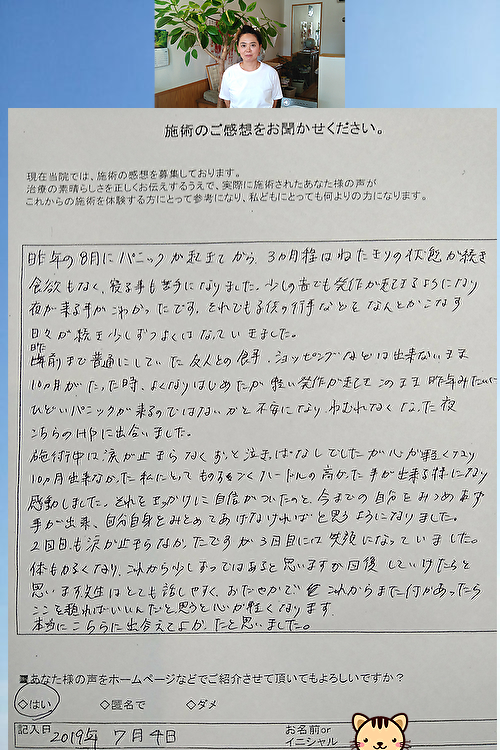 施術のご感想をお聞かせください。
現在当院では、施術の感想を募集しております。
治療の素晴らしさを正しくお伝えするうえで、実際に施術されたあなた様の声が
これからの施術を体験する方にとって参考になり、私どもにとっても何よりの力になります。
昨年の8月にパニックが起きてから、3ヵ月程はねたきりの状態が続き
食欲もなく、寝る事も苦手になりました。少しの音でも発作が起きてるようになり
夜が来る事がこわかったです。それでも子供の行事などをなんとかこなす
日々が続き少しずつよくはなっていきました。
昨年前まで普通にしていた友人との食事、ショッピングなどは出来ないまま
10ヵ月がたった時、よくなりはじめたが軽い発作が起きて このまま昨年みたいに
ひどいパニックが来るのではないかと不安になり、ねむれなくなった夜
こちらのHPに出会いました。
施術中は涙が止まらなくずっと泣きっぱなしでしたが心が軽くなり
10ヵ月出来なかった私にとってものすごくハードルの高かった事が出来る様になり
感動しました。それをきっかけに自信がついたのと、今までの自分をみつめなおす
事が出来、自分自身をみとめてあげなければと思うようになりました。
2回目も涙が止まらなかったですが3回目には笑顔になっていました。
体もかるくなり、これから少しずつではあると思いますが回復していけたらと
思います。先生はとても話しやすく、おだやかで これからまた何かあったら
ここを頼ればいいんだと思うと心が軽くなります。
本当にこちらに出会えてよかったと思いました。
あなた様の声をホームページなどでご紹介させて頂いてもよろしいですか？
◇はい ◇匿名で ◇ダメ
記入日 2019年 7月4日 お名前or
イニシャル